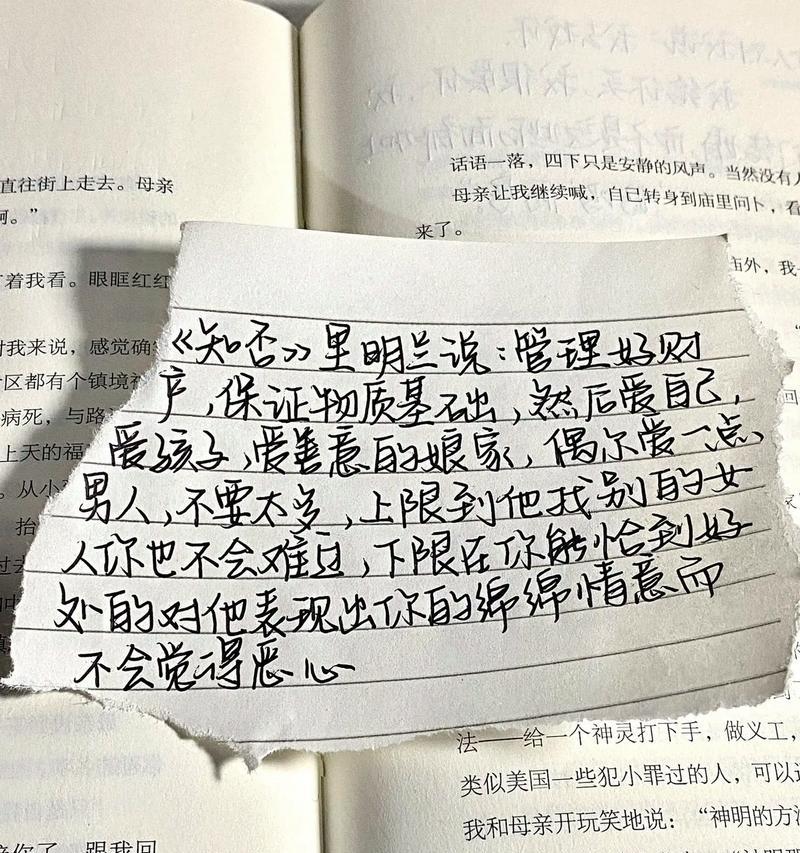 直往街上走去。母亲
啊。”
着我看。眼眶红红
对我来说，感觉确
区都有个镇境
病死，与路
上天的福
。从小
抬
过去
话语一落，四下只是安静的风声。当然没有人
母亲让我继续喊，自己转身到庙里问卜，看
来了。
庙外，我
《知否》里明兰说：管理好财
产，保证物质基础，然后爱自己，
爱孩子，爱善意的娘家，偶尔爱一点
男人，不要太多，上限到他找别的女
人你也不会难过，下限在你能恰到好
处的对他表现出你的绵绵情意而
不会觉得恶心
法——给一个神灵打下手，做义工，
类似美国一些犯小罪过的人，可以
我和母亲开玩笑地说：“神明的方法
你了，跟我回